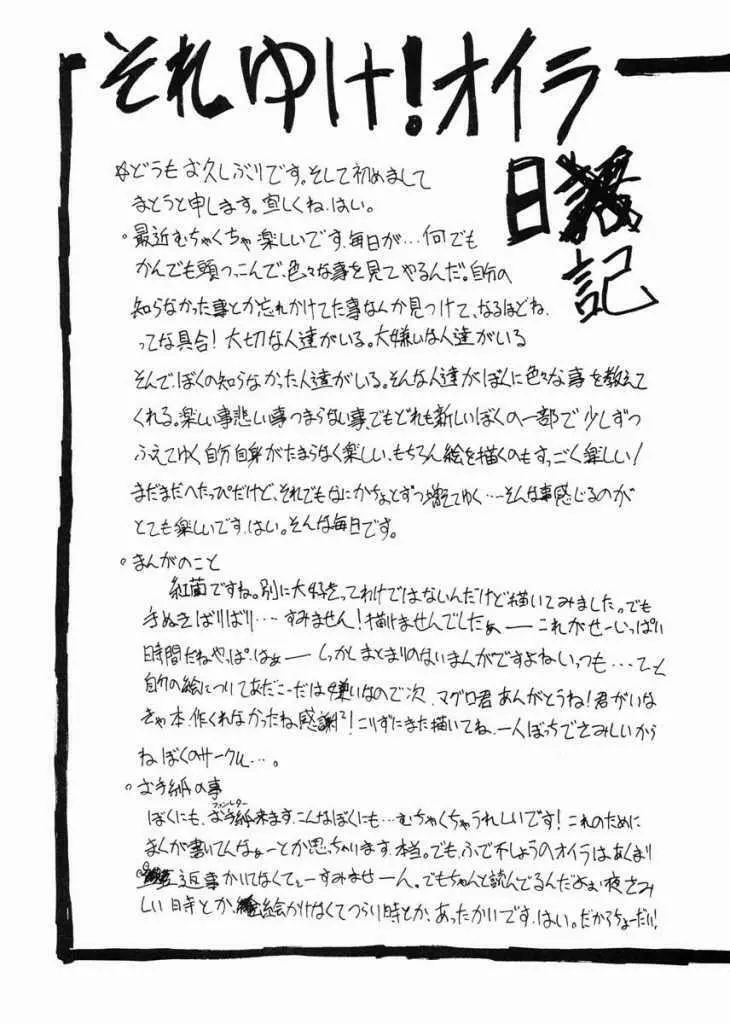 それゆけ!オイラ
日記
☆どうもお久しぶりです。そして初めまして
まとうと申します。宜しくね。はい。
・最近むちゃくちゃ楽しいです、毎日が…何でも
かんでも頭つっこんで、色々な事を見てやるんだ。自分の
知らなかった事とか忘れかけてた事なんか見つけて、なるほどね、
ってな具合!大切な人達がいる。大嫌いな人達がいる
そんで、ぼくの知らなかった人達がいる。そんな人達がぼくに色々な事を教えて
くれる。楽しい事悲しい事つまらない事、でもどれも新しいぼくの一部で少しずつ
ふえてゆく自分自身がたまらなく楽しい、もちろん絵を描くのもすっごく楽しい!
まだまだへたっぴだけど、それでもなにかちょっとずつ増えてゆく…そんな事感じるのが
とても楽しいです、はい。そんな毎日です。
・まんがのこと
紅茜ですね。別に大好きってわけではないんだけど描いてみました。でも
手ぬきばりばり…すみません!描けませんでしたぁーこれがせーいっぱい
時間だねやっぱ。はぁーしっかしまとまりのないまんがですよねいっつも…てと
自分の絵についてあだこーだは嫌いなので次、マグロ君あんがとうね!君がいな
きゃ本、作くれなかったね感謝!こりずにまた描いてね、一人ぼっちでさみしいから
ねぼくのサークル…。
・お手紙の事
ぼくにも、お手紙来ます、こんなぼくにも…むちゃくちゃうれしいです!これのために
ファンレター
まんが書いてんなぁーとか思っちゃいます、本当。でも、ふで不しょうのオイラはあくまり
返事かいてなくてぇーすみませーん。でもちゃんと読んでるんだよぉ、夜さみ
しい日寺とか、絵かけなくてつらい時とか、あったかいです、はい。だからちょーだい!